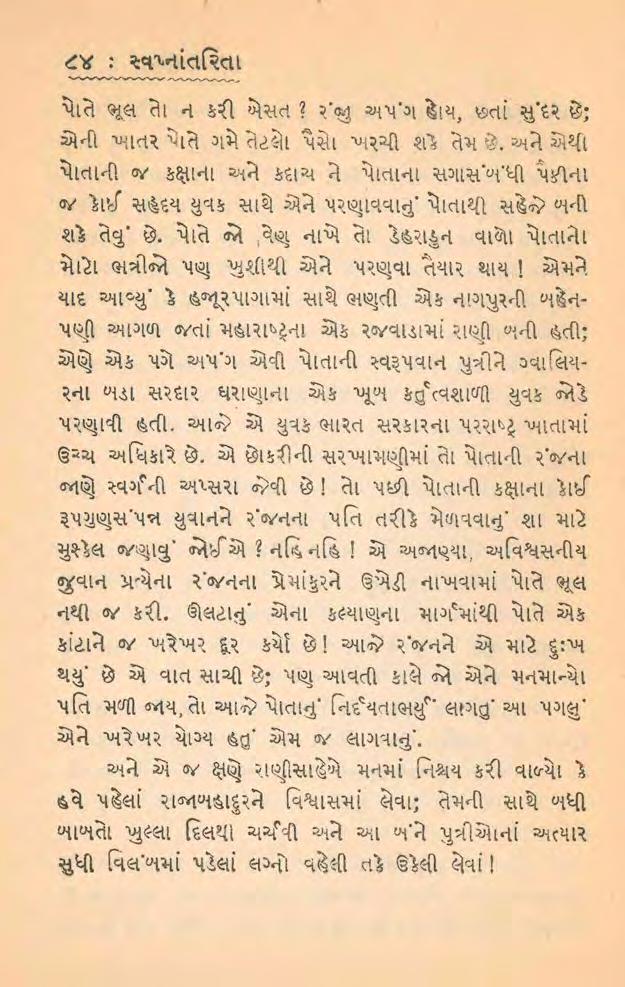 ૮૪ : સ્વપ્નાંતરિતા
પોતે ભૂલ તો ન કરી બેસત ? રંજુ અપંગ હોય, છતાં સુંદર છે;
એની ખાતર પોતે ગમે તેટલો પૈસો ખરચી શકે તેમ છે. અને એથી
પોતાની જ કક્ષાના અને કદાચ ને પોતાના સગાસંબંધી પૈકીના
જ કોઈ સહૃદય યુવક સાથે એને પરણાવવાનું પોતાથી સહેજે બની
શકે તેવું છે. પોતે જો વેણ નાખે તો ડેહરાડુન વાળા પોતાનો
મોટો ભત્રીજો પણ ખુશીથી એને પરણવા તૈયાર થાય ! એમને
યાદ આવ્યું કે હજૂરપાગામાં સાથે ભણતી એક નાગપુરની બહેન-
પણી આગળ જતાં મહારાષ્ટ્રના એક રજવાડામાં રાણી બની હતી;
એણે એક પગે અપંગ એવી પોતાની સ્વરૂપવાન પુત્રીને ગ્વાલિય-
રના બડા સરદાર ઘરાણાના એક ખૂબ કર્તૃત્વશાળી યુવક જોડે
પરણાવી હતી. આજે એ યુવક ભારત સરકારના પરરાષ્ટ્ર ખાતામાં
ઉચ્ચ અધિકારે છે. એ છોકરીની સરખામણીમાં તો પોતાની રંજના
જાણે સ્વર્ગની અપ્સરા જેવી છે ! તો પછી પોતાની કક્ષાના કોઈ
રૂપગુણસંપન્ન યુવાનને રંજનના પતિ તરીકે મેળવવાનું શા માટે
મુશ્કેલ જણાવું જોઈએ ? નહિ નહિ ! એ અજાણ્યા, અવિશ્વસનીય
જુવાન પ્રત્યેના રંજનના પ્રેમાંકુરને ઉખેડી નાખવામાં પોતે ભૂલ
નથી જ કરી. ઊલટાનું એના કલ્યાણના માર્ગમાંથી પોતે એક
કાંટાને જ ખરેખર દૂર કર્યો છે! આજે રંજનને એ માટે દુઃખ
થયું છે એ વાત સાચી છે; પણ આવતી કાલે જો એને મનમાન્યો
પતિ મળી જાય, તો આજે પોતાનું નિર્દયતાભર્યું લાગતું આ પગલું
એને ખરેખર યોગ્ય હતું એમ જ લાગવાનું.
અને એ જ ક્ષણે રાણીસાહેબે મનમાં નિશ્ચય કરી વાળ્યો કે
હવે પહેલાં રાજાબહાદુરને વિશ્વાસમાં લેવા; તેમની સાથે બધી
બાબતો ખુલ્લા દિલથી ચર્ચવી અને આ બંને પુત્રીઓનાં અત્યાર
સુધી વિલંબમાં પડેલાં લગ્નો વહેલી તકે ઉકેલી લેવાં!